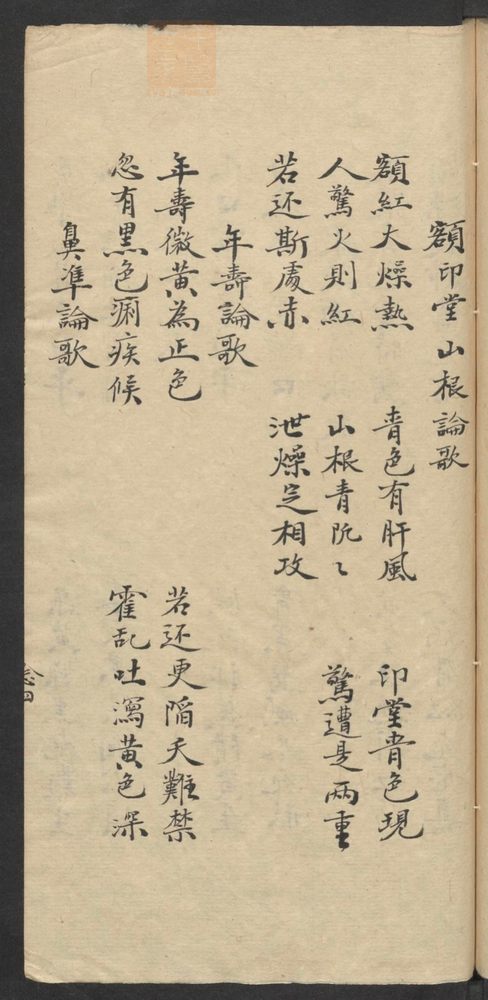 額印堂山根論歌
額紅大燥熱 青色有肝風 印堂青色現
人驚火則紅 山根青阮〻 驚遭是两重
若还斯處赤 泄燥定相攻
年壽論歌
年壽微黃為正色 若还更陷夭難禁
忽有黑色痢疾候 霍乱吐瀉黃色深
鼻準論歌